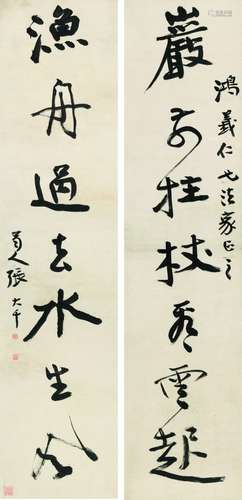 巖前拄杖看雲起
鴻義仁也法家正之
漁舟過去水生風
蜀人張大千